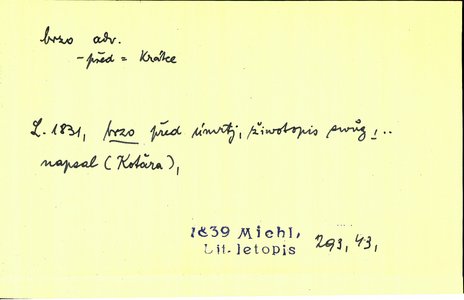 brzo adv.
- před = krátce
L. 1831, brzo před úmrtj, žiwotopis swůg !..
napsal (Kotára),
1839 Michl,
Lit. letopis 293, 43,